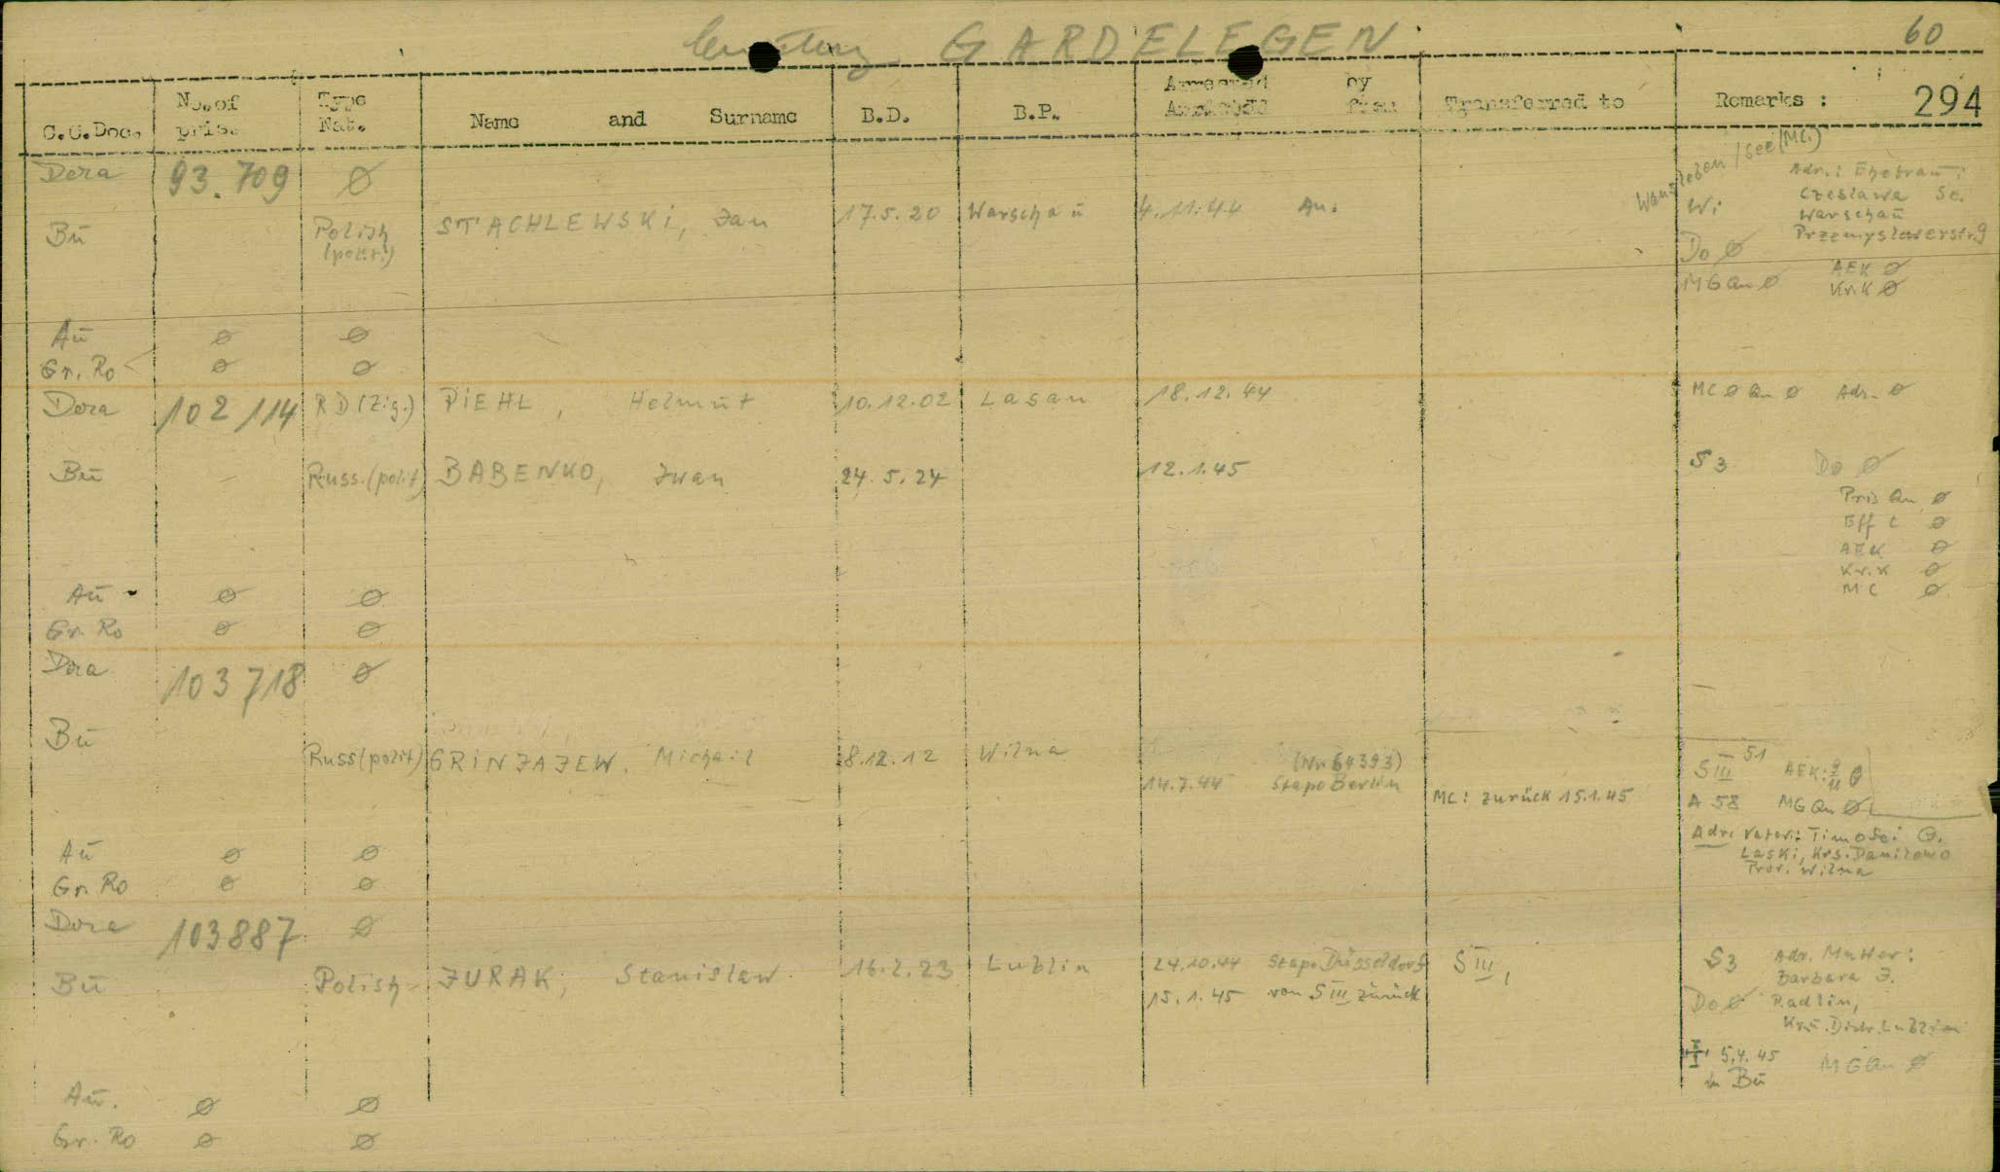 Cemetery GARDELEGEN 60
C.C.Doc. No. of pris. Type Nat. Name and Surname B.D. B.P. Arrested by from Transferred to Remarks : 294
Dora 93.709 Ø
Bū Polish (polit.) STACHLEWSKi, Jan 17.5.20 Warschaū 4.11.44 Au. Wansleben/See (MC.)
Wi Adr.: Ehefrau:
Czeslawa St.
Warschaū
Do Ø
MG Qu Ø AEK Ø
Kr.K Ø
Aū Ø Ø
Gr. Ro Ø Ø
Dora 102 114 RD (Zig.) PiEHL, Helmūt 10.12.02 Lasan 18.12.44 MC Ø Qu Ø Adr. Ø
Bū Russ. (polit) BABENKO, Jwan 24.5.24 12.1.45 S3 Do Ø
Pris Qu Ø
Eff C Ø
AEK Ø
Kr.K Ø
MC Ø
Aū Ø Ø
Gr. Ro Ø Ø
Dora 103 718 Ø
Bū Russ (polit) GRiNJAJEW, Michail 8.12.12 Wilna (Nr 64393)
14.7.44 Stapo Berlin MC: zurück 15.1.45
S III 51 AEK: Ø
A 58 MG Qu Ø
Adr. Vater: Timofei G.
Laski, Krs. Danilowo
Prov. Wilna
Aū Ø Ø
Gr. Ro Ø Ø
Dora 103887 Ø
Bū Polish JURAK, Stanislaw 16.2.23 Lublin 24.10.44 Stapo Düsseldorf S III,
15.1.45 von S III zurück
S3 Adr. Mutter:
Barbara J.
Do Ø Radlin,
Distr. Lublin
5.4.45 MG Qu Ø
in Bū
Aū. Ø Ø
Gr. Ro Ø Ø